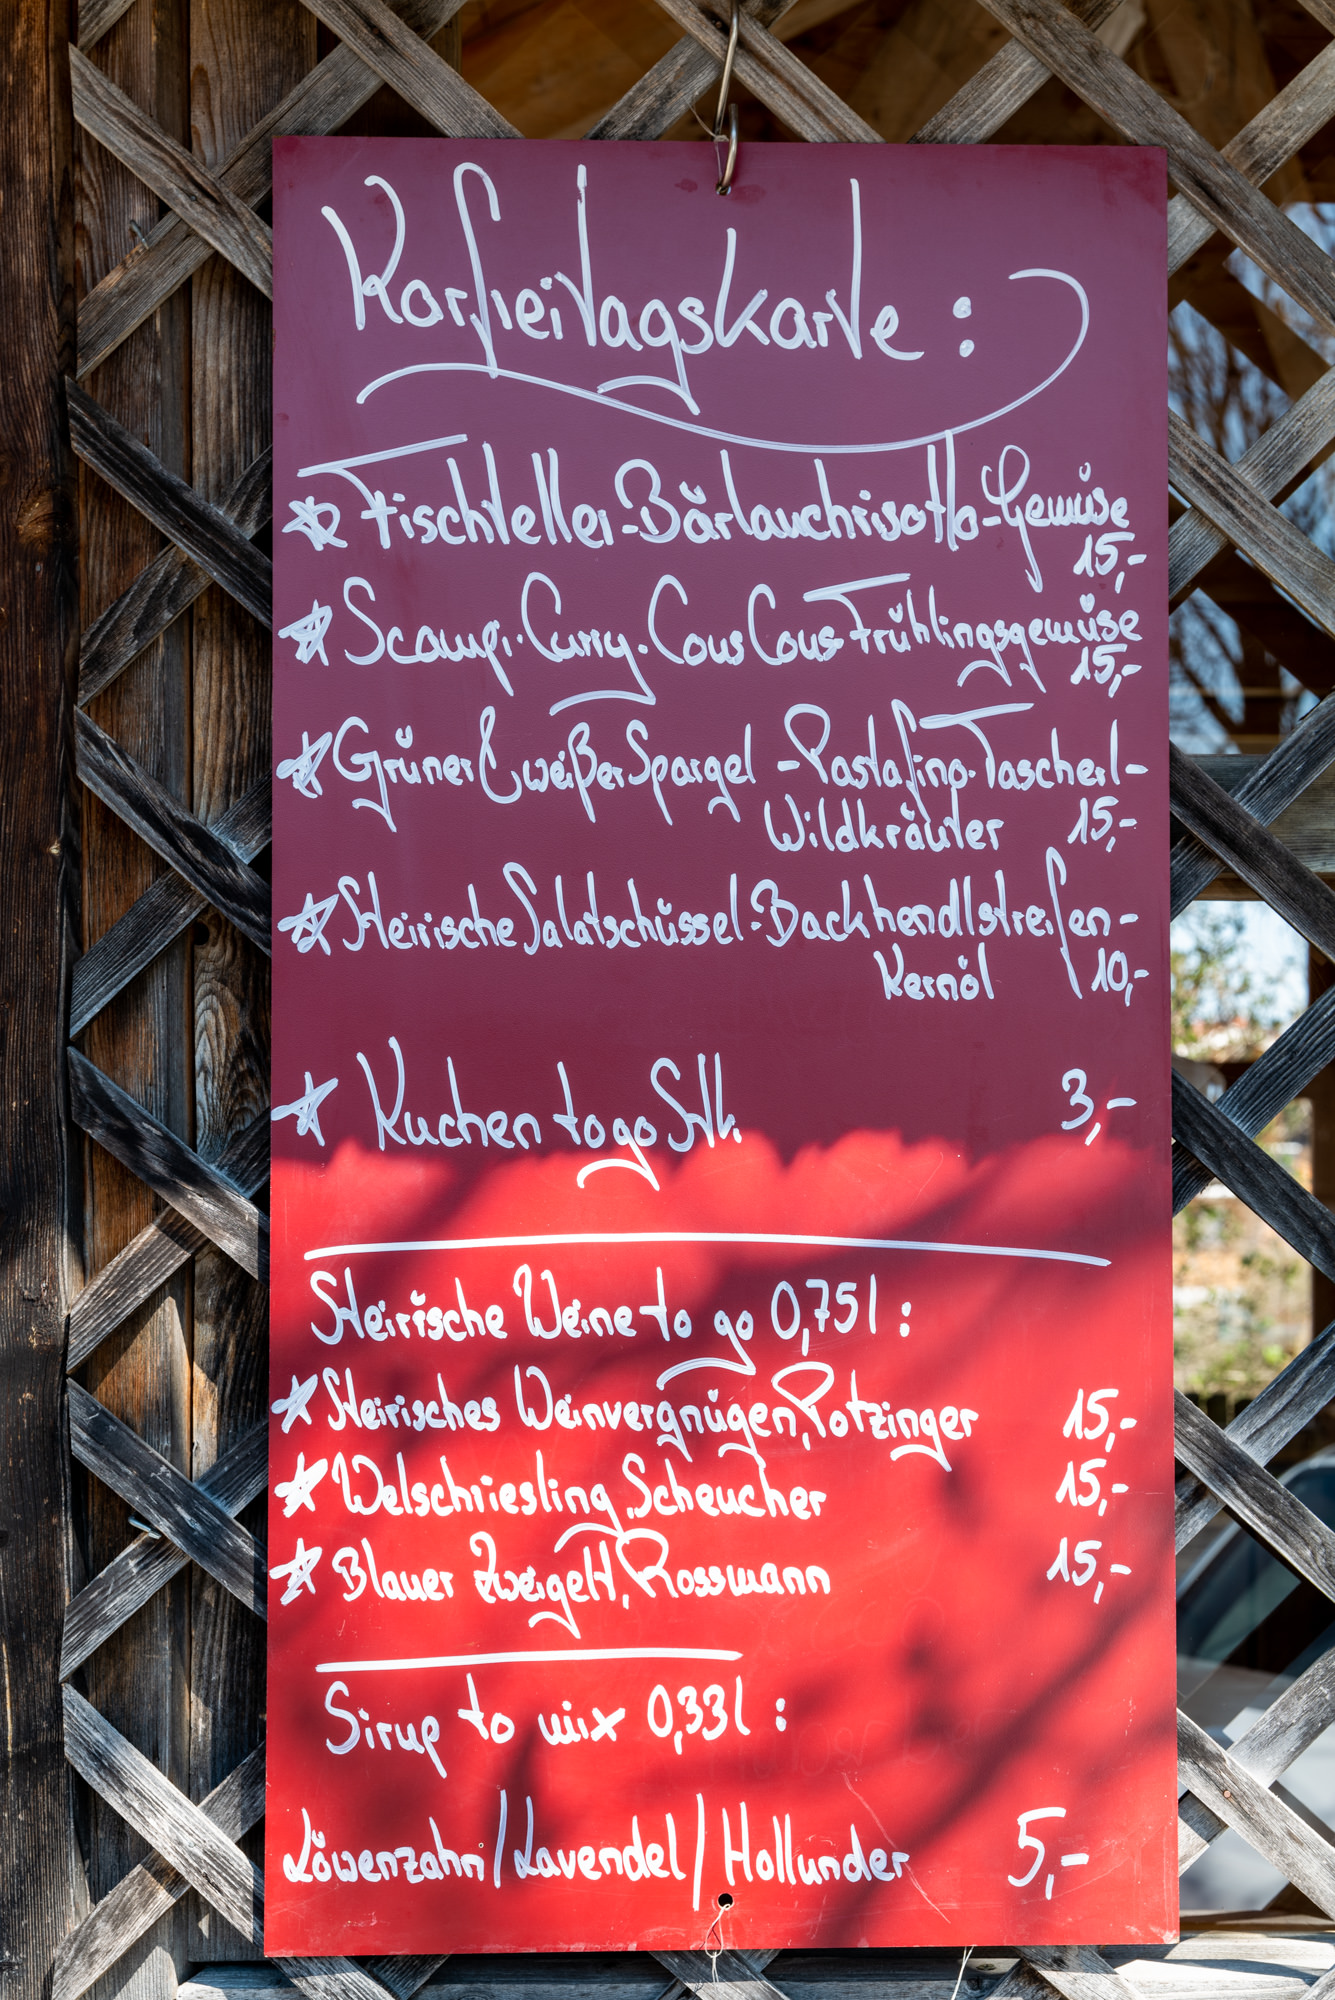 Karfreitagskarte:
Fischteller-Bärlauchrisotto-Gemüse
15,-
Scampi-Curry-Cous Cous Frühlingsgemüse
15,-
Grüner & weißer Spargel -Pastafino-Tascherl-
Wildkräuter 15,-
Steirische Salatschüssel-Backhendlstreifen-
Kernöl 10,-
Kuchen to go Stk. 3,-
Steirische Weine to go 0,75l:
Steirisches Weinvergnügen, Potzinger 15,-
Welschriesling, Scheucher 15,-
Blauer Zweigelt, Rossmann 15,-
Sirup to mix 0,33l:
Löwenzahn/Lavendel/Hollunder 5,-